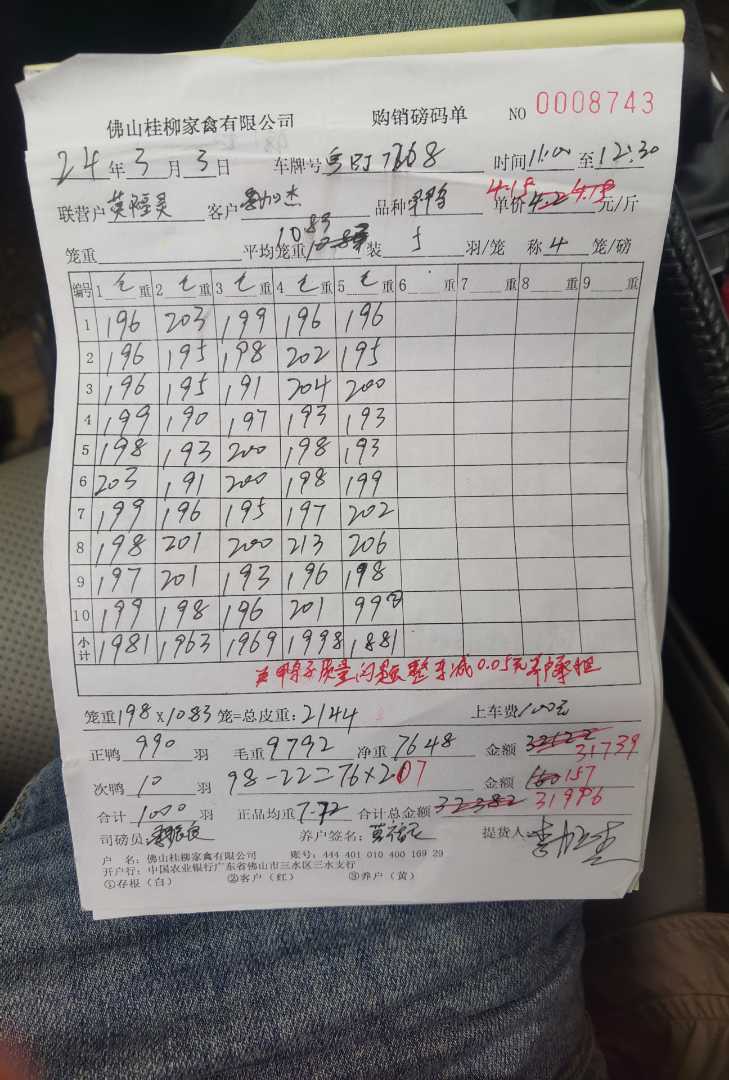 佛山桂柳家禽有限公司 购销磅码单 NO 0008743
24年3月3日 车牌号 时间11:00至12:30
联营户 客户 品种 单价4.2 4.15 4.15元/斤
笼重 平均笼重10.83装5羽/笼 称4笼/磅
编号 1毛重 2毛重 3毛重 4毛重 5毛重 6重 7重 8重 9重
1 196 203 199 196 196
2 196 195 198 202 195
3 196 195 191 204 200
4 199 190 197 193 193
5 198 193 200 198 193
6 203 191 200 198 199
7 199 196 195 197 202
8 198 201 200 213 206
9 197 201 193 196 198
10 199 198 196 201 99
小计 1981 1963 1969 1998 1881
鸭子质量问题整车减0.05元
笼重198×1083笼=总皮重:2144 上车费100元
正鸭990羽 毛重9792 净重7648 金额 31739
次鸭10羽 98-22=76×207 金额 157
合计1000羽 正品均重7.72 合计总金额32382 31996
司磅员 养户签名: 提货人
户 名:佛山桂柳家禽有限公司 账号:444 401 010 400 169 29
开户行:中国农业银行广东省佛山市三水区三水支行
①存根(白) ②客户(红) ③养户(黄)